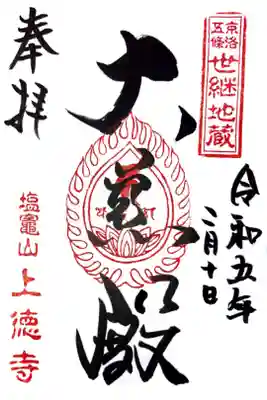 京洛
五條
世継地蔵
奉拝
大慈殿
令和五年
二月十日
塩竈山
上徳寺